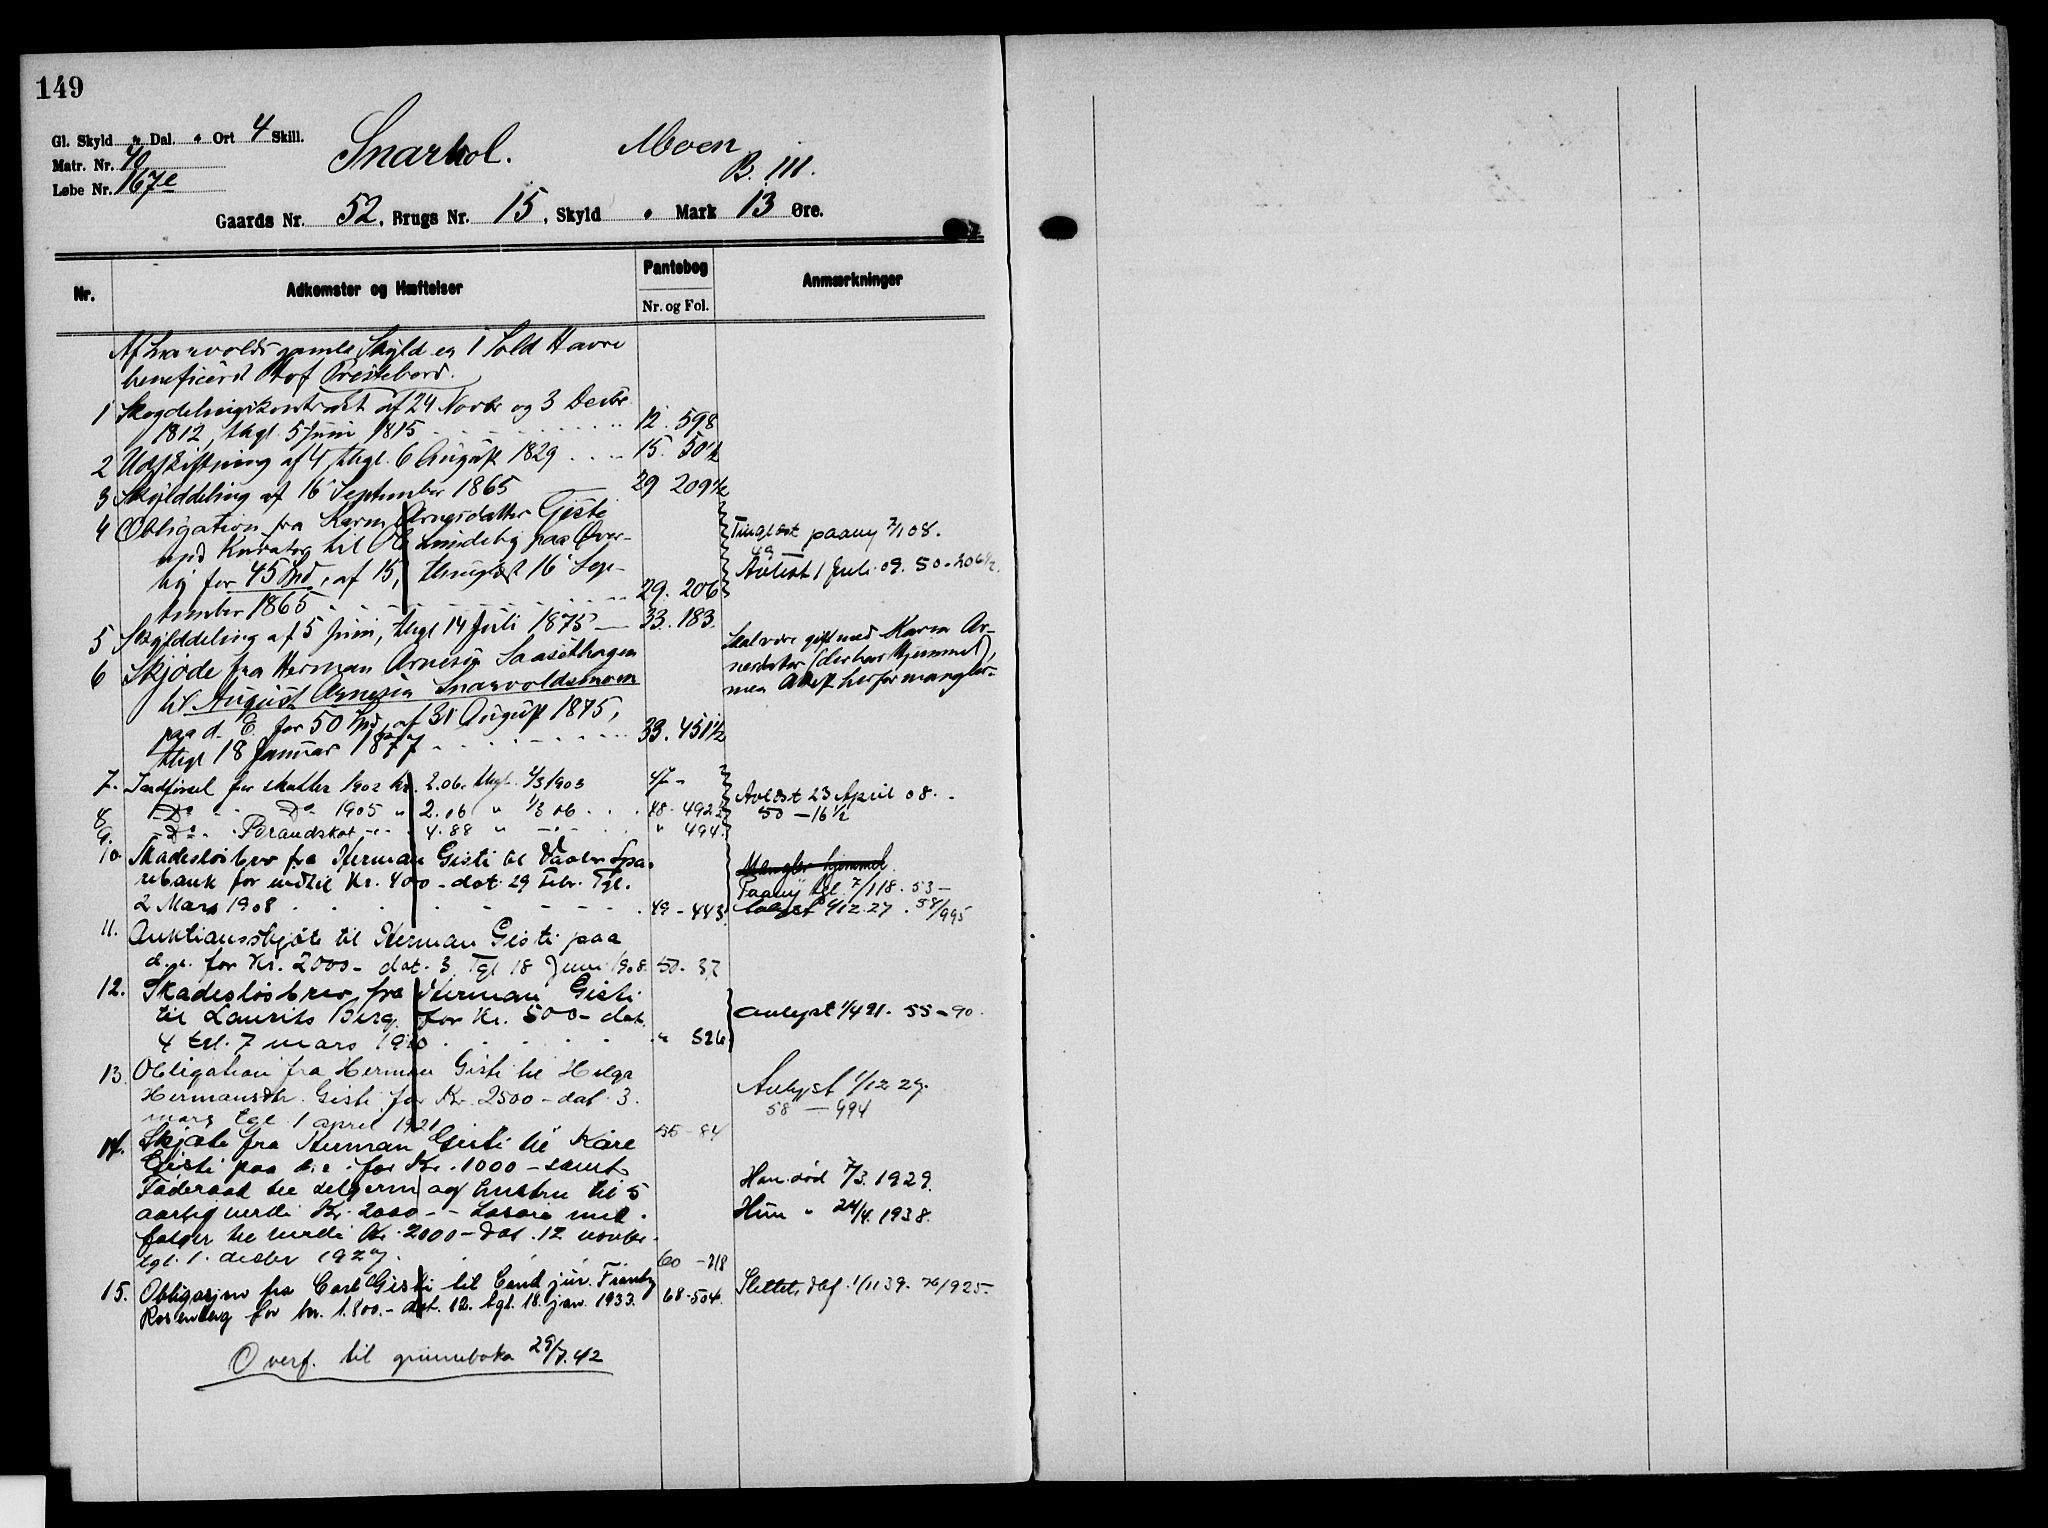 149
Gl. Skyld " Dal. " Ort 4 Skill.
Matr. Nr. 40
Løbe Nr. 167e
Snarhol. Moen
B. III.
Gaards Nr. 52, Brugs Nr. 15, Skyld " Mark 13 Øre.
Nr. Adkomster og Hæftelser Pantebog Nr. og Fol. Anmærkninger
Af Snarvolds gamle Skyld er 1 Sold Havre
beneficeret Prestebord.
1 Skogdelingskontrakt af 24 Novbr og 3 Decbr
1812, thgl. 5 Juni 1815 12. 598
2 Udskiftning af 4 thgl. 6 August 1829 15. 50½
3 Skylddeling af 16 September 1865 29 209½
4 Obligation fra Karen Arnesdatter Gisti Tinglæst paany 7/1 08.
med Kurator til Ole Lundeby paa Øver- 49
by for 45 Spd, af 15, thinglæst 16 Sep- Avlæst 1 Juli 09. 50-206½.
tember 1865 29. 206
5 Skylddeling af 5 Juni, thgl 14 Juli 1875 33. 183
6 Skjøde fra Herman Arnesen Saasethagen Skal være gift med Karen Ar-
til August Arnesen Snarvoldsmoen nesdatter (der har Hjemmel),
paa d. E. for 50 Spd, af 31 August 1875, men Attest herfor mangler
thgl 18 Januar 1877 33. 451½
7. Indførsel for skatter 1902 Kr. 2.06. thgl. 4/3 1903 47-
8 - Do - Do 1905 " 2.16 " 1/3 06 48-492 Avlæst 23 April 08.
9. - Do - Brandskat 4.88 " " 494. 50 - 16½
10 Skadesløsbrev fra Herman Gisti til Vaaler Spa-
rebank for indtil Kr. 400- dat. 29 Febr. Tgl. Mangler hjemmel.
2 Mars 1908 49-443 Paany tgl. 7/1 18. 53-
Avlyst 1/12 27. 58/995
11. Auktionsskjøte til Herman Gisti paa
d. e. for Kr. 2000- dat. 3. Tgl 18 Juni 1908. 50-37
12. Skadesløsbrev fra Herman Gisti
til Laurits Berg for Kr. 500- dat. avlyst 1/4 21. 55-90.
4 tgl. 7 mars 1910 " 526
13. Obligation fra Herman Gisti til Helga
Hermansdtr. Gisti for Kr. 2500- dat. 3. Avlyst 1/12 27.
mars tgl. 1 april 1921 55-84 58 - 994
14. Skjøte fra Herman Gisti til Kåre
Gisti paa d. e. for Kr. 1000- samt
Føderaad til selgeren og hustru til 5 Han død 7/3. 1929.
aarlig verdi Kr. 2000- - Løsøre med- Hun " 24/4. 1938.
følger til verdi Kr. 2000- dat. 12 novbr.
tgl. 1. decbr 1927. 60 - 218
15. Obligasjon fra Carl Gisti til Cand. jur. Frantz Slettet, dgf. 1/11 39. 76/925.
Rosenberg for kr. 1.800.- dat. 12. tgl. 18. jan. 1933. 68-504.
Overf. til grunnboka 29/7.42